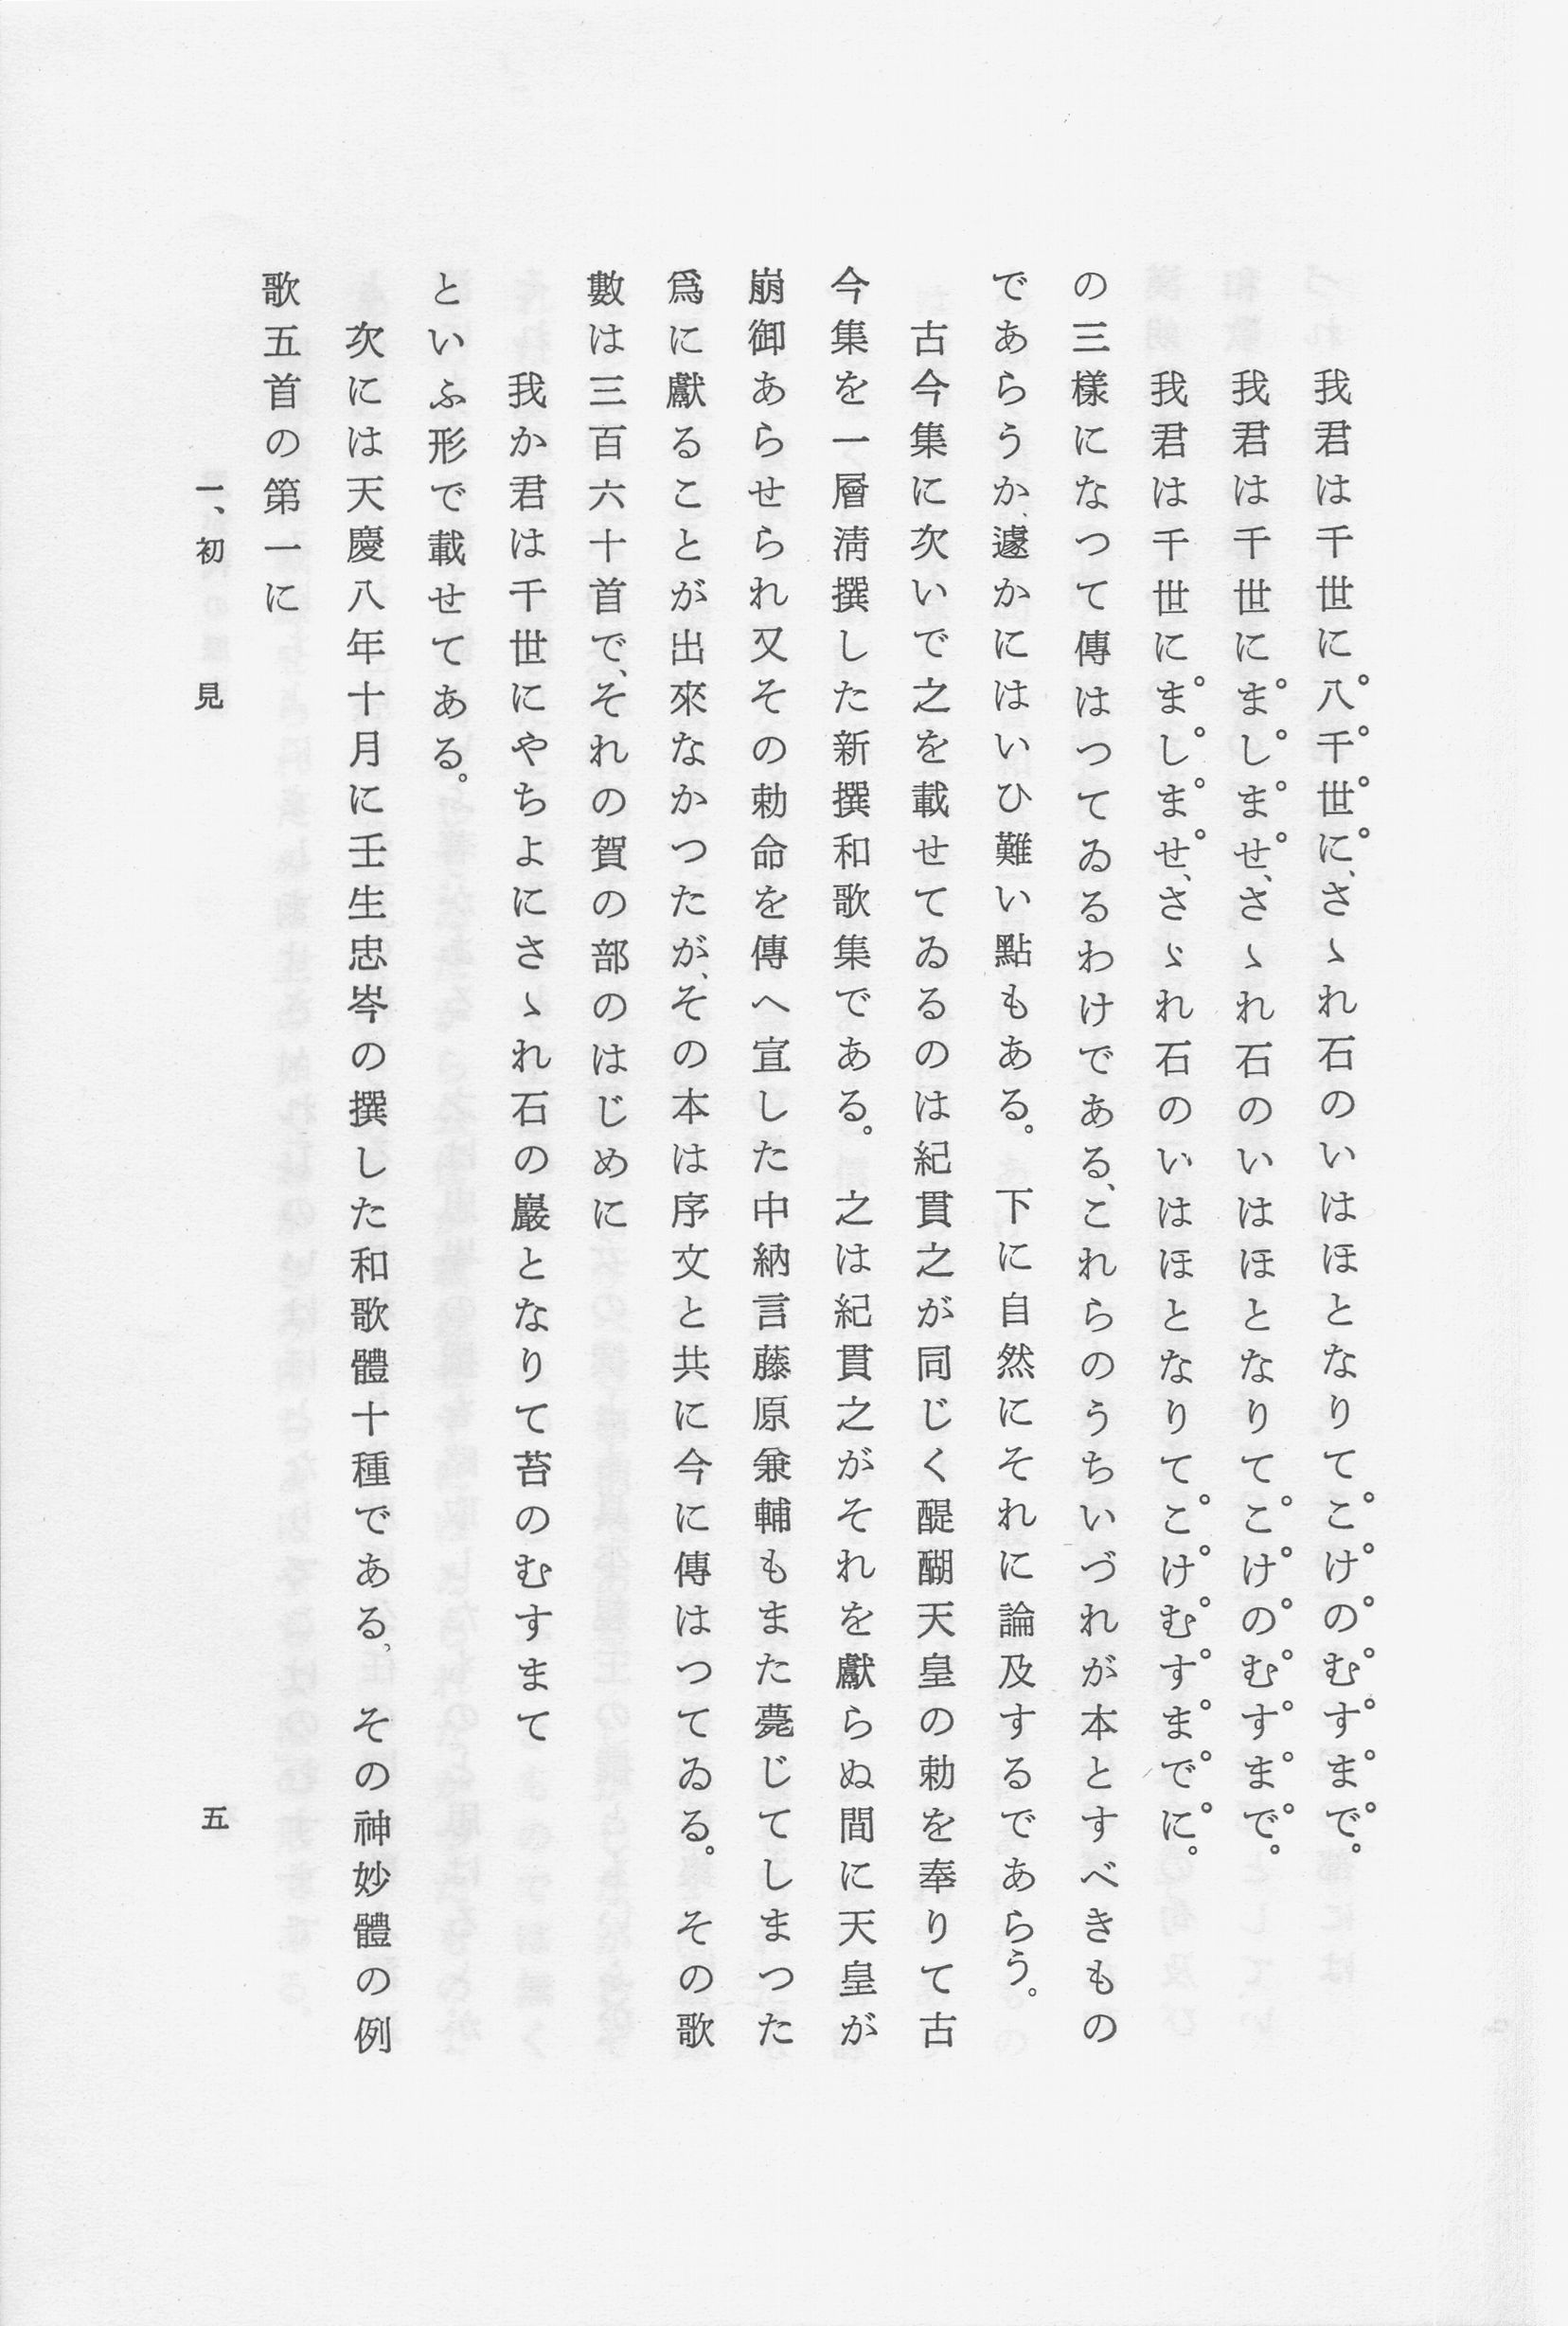 我君は千世に八千世に、さゝれ石のいはほとなりてこけのむすまで。
我君は千世にましませ、さゝれ石のいはほとなりてこけのむすまで。
我君は千世にましませ、さゞれ石のいはほとなりてこけむすまでに。
の三樣になつて傳はつてゐるわけである、これらのうちいづれが本とすべきもの
であらうか、遽かにはいひ難い點もある。下に自然にそれに論及するであらう。
古今集に次いで之を載せてゐるのは紀貫之が同じく醍醐天皇の勅を奉りて古
今集を一層淸撰した新撰和歌集である。之は紀貫之がそれを獻らぬ間に天皇が
崩御あらせられ又その勅命を傳へ宣した中納言藤原兼輔もまた薨じてしまつた
爲に獻ることが出來なかつたが、その本は序文と共に今に傳はつてゐる。その歌
數は三百六十首で、それの賀の部のはじめに
我か君は千世にやちよにさゝれ石の巖となりて苔のむすまて
といふ形で載せてある。
次には天慶八年十月に壬生忠岑の撰した和歌體十種である、その神妙體の例
歌五首の第一に
一、初見
五